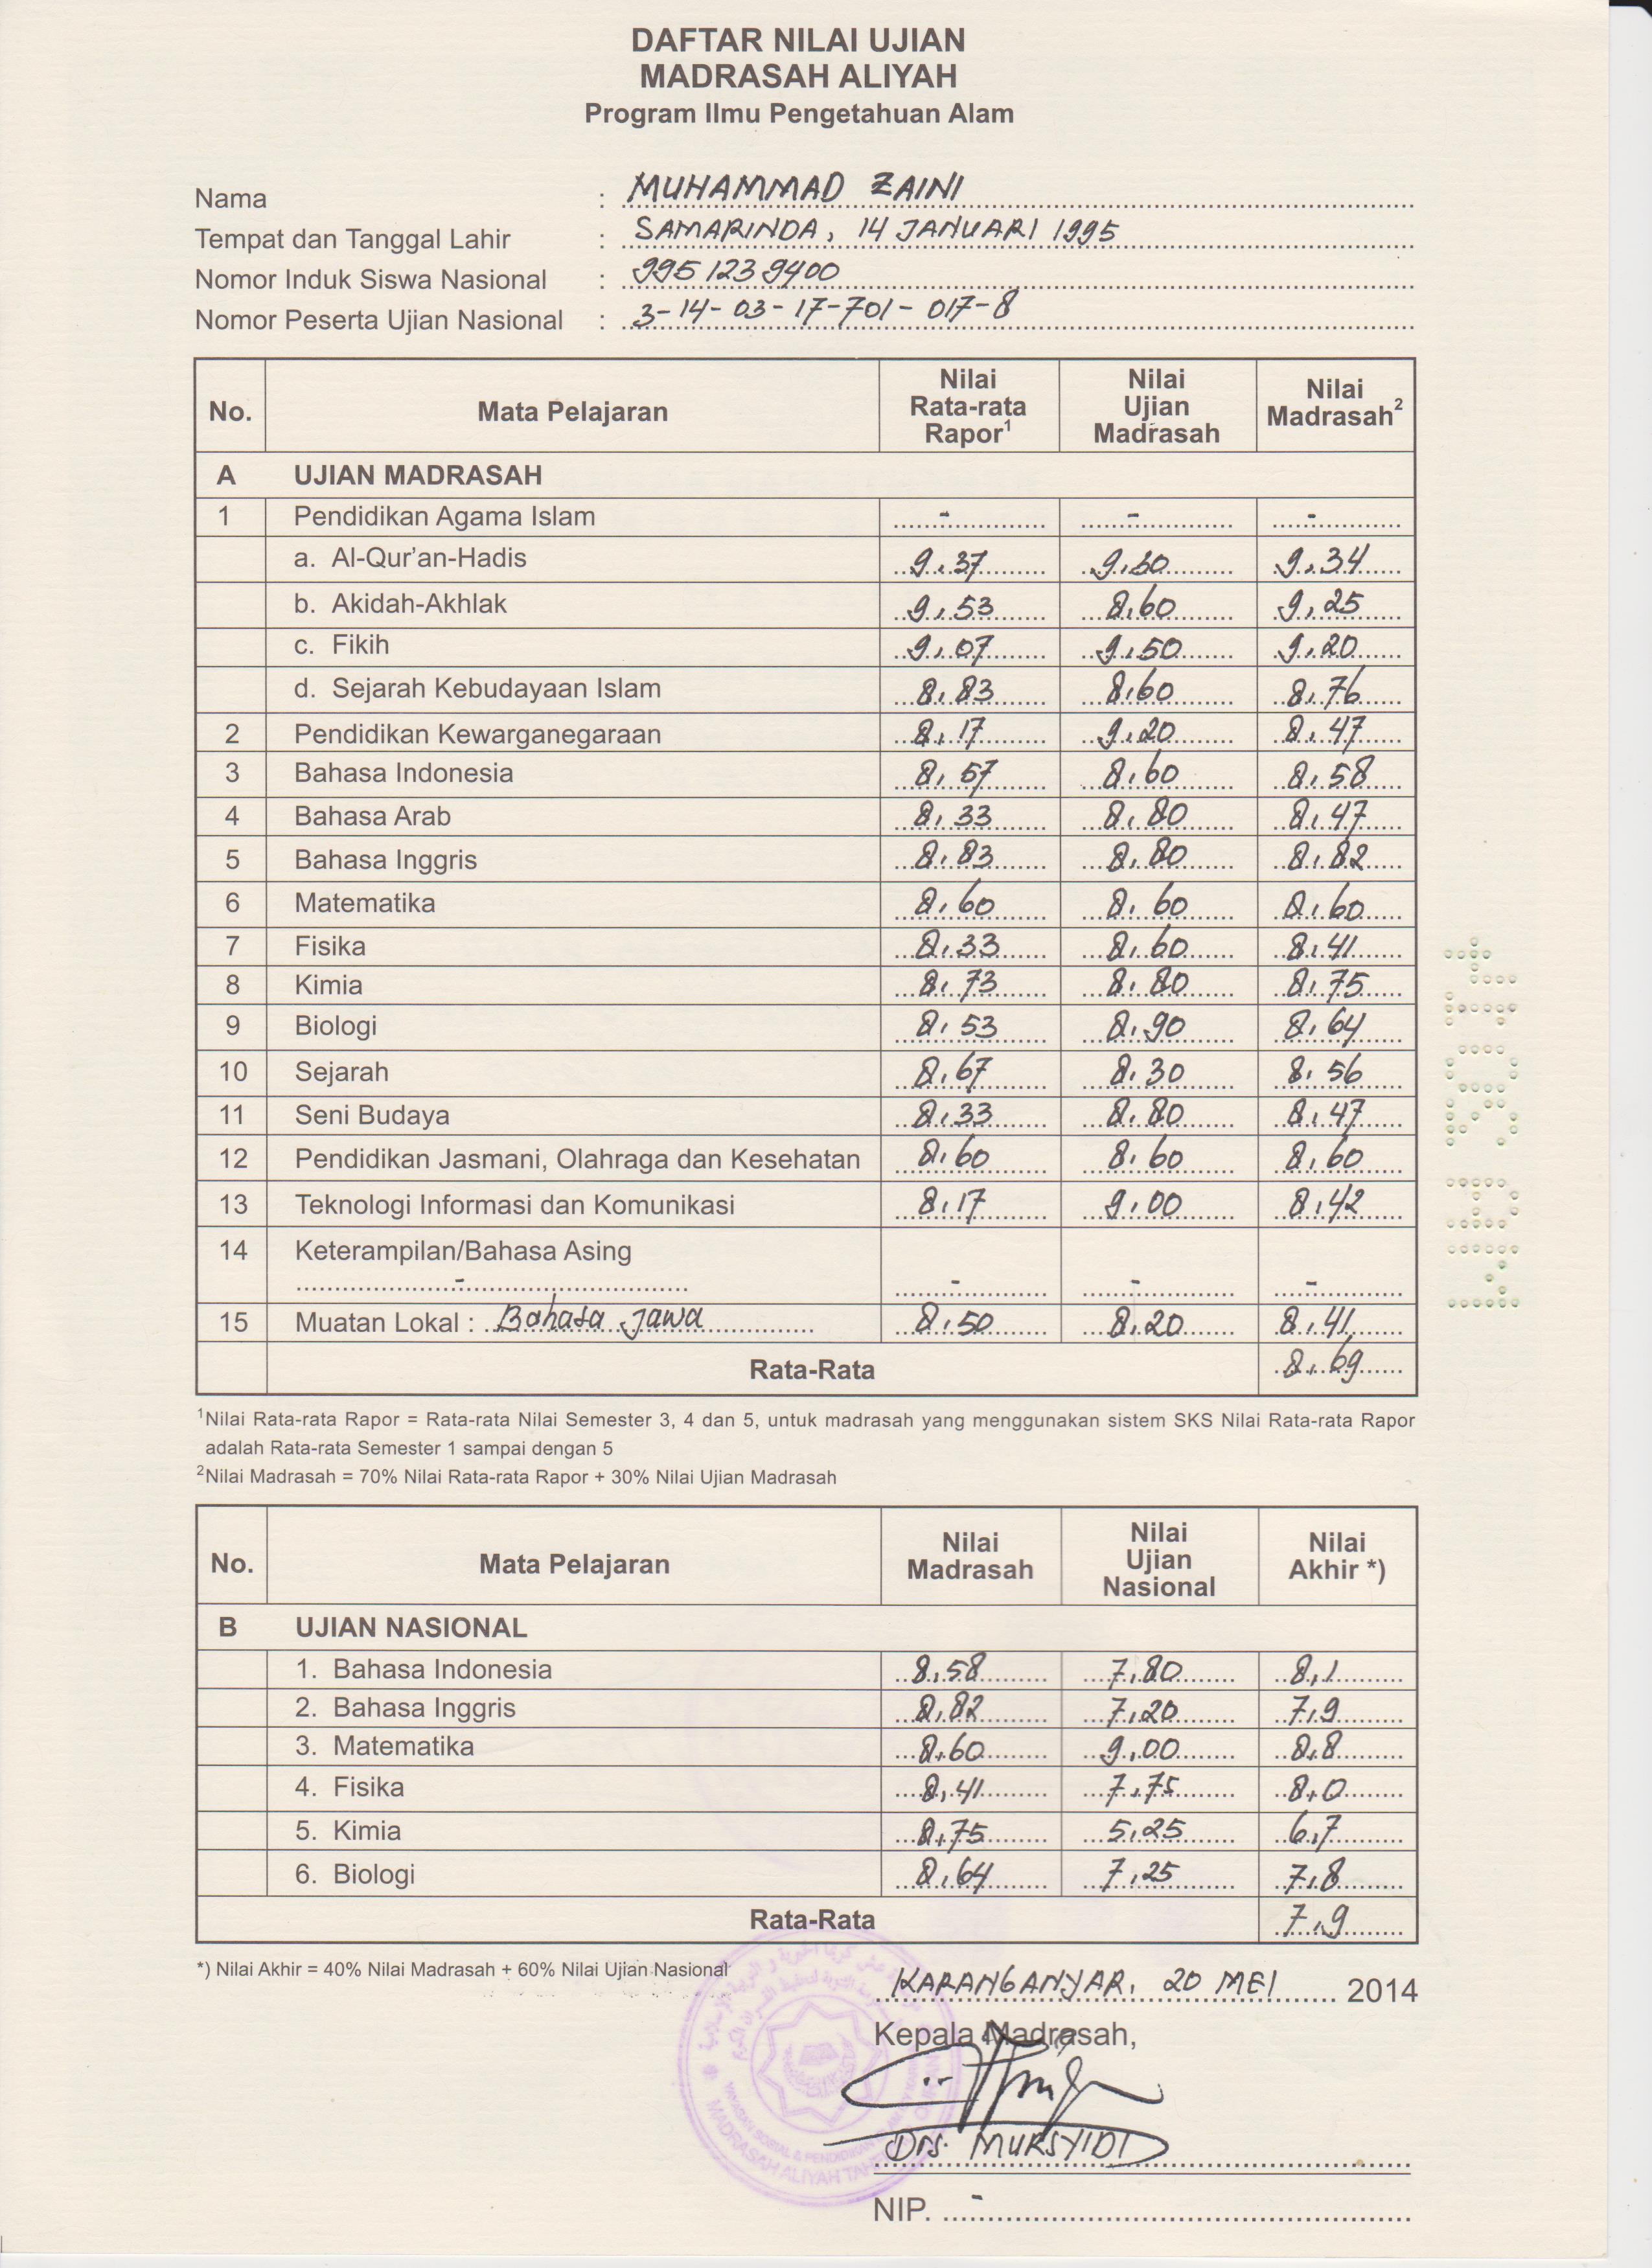 DAFTAR NILAI UJIAN
MADRASAH ALIYAH
Program Ilmu Pengetahuan Alam
Nama : MUHAMMAD ZAINI
Tempat dan Tanggal Lahir : SAMARINDA, 14 JANUARI 1995
Nomor Induk Siswa Nasional : 9951239400
Nomor Peserta Ujian Nasional : 3-14-03-17-701-017-8
No. Mata Pelajaran Nilai Rata-rata Rapor¹ Nilai Ujian Madrasah Nilai Madrasah²
A UJIAN MADRASAH
1 Pendidikan Agama Islam - - -
a. Al-Qur'an-Hadis 9,37 9,30 9,34
b. Akidah-Akhlak 9,53 8,60 9,25
c. Fikih 9,07 9,50 9,20
d. Sejarah Kebudayaan Islam 8,83 8,60 8,76
2 Pendidikan Kewarganegaraan 8,17 9,20 8,47
3 Bahasa Indonesia 8,57 8,60 8,58
4 Bahasa Arab 8,33 8,80 8,47
5 Bahasa Inggris 8,83 8,80 8,82
6 Matematika 8,60 8,60 8,60
7 Fisika 8,33 8,60 8,41
8 Kimia 8,73 8,80 8,75
9 Biologi 8,53 8,90 8,64
10 Sejarah 8,67 8,30 8,56
11 Seni Budaya 8,33 8,80 8,47
12 Pendidikan Jasmani, Olahraga dan Kesehatan 8,60 8,60 8,60
13 Teknologi Informasi dan Komunikasi 8,17 9,00 8,42
14 Keterampilan/Bahasa Asing
- - - -
15 Muatan Lokal : Bahasa Jawa 8,50 8,20 8,41
Rata-Rata 8,69
¹Nilai Rata-rata Rapor = Rata-rata Nilai Semester 3, 4 dan 5, untuk madrasah yang menggunakan sistem SKS Nilai Rata-rata Rapor
adalah Rata-rata Semester 1 sampai dengan 5
²Nilai Madrasah = 70% Nilai Rata-rata Rapor + 30% Nilai Ujian Madrasah
No. Mata Pelajaran Nilai Madrasah Nilai Ujian Nasional Nilai Akhir *)
B UJIAN NASIONAL
1. Bahasa Indonesia 8,58 7,80 8,1
2. Bahasa Inggris 8,82 7,20 7,9
3. Matematika 8,60 9,00 8,8
4. Fisika 8,41 7,75 8,0
5. Kimia 8,75 5,25 6,7
6. Biologi 8,64 7,25 7,8
Rata-Rata 7,9
*) Nilai Akhir = 40% Nilai Madrasah + 60% Nilai Ujian Nasional
KARANGANYAR, 20 MEI 2014
Kepala Madrasah,
Drs. MURSYIDI
NIP. -
MADRASAH ALIYAH